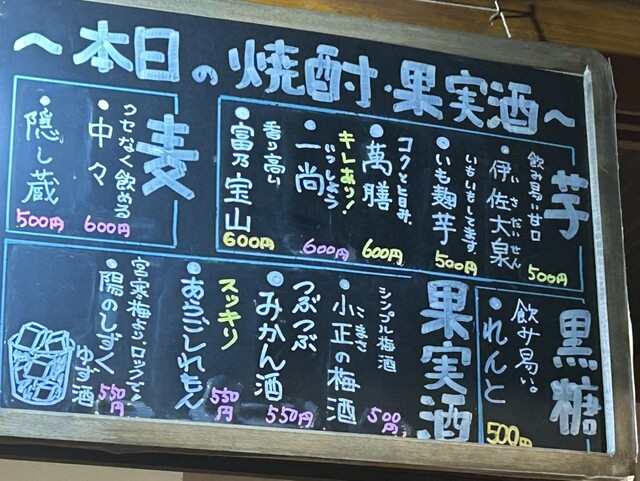 ～本日の焼酎・果実酒～
芋
飲み易い甘口
伊佐大泉
いさだいせん
500円
いもいもしてます
いも麹芋
500円
コクと旨み、
萬膳
600円
キレあり！
一尚
いっしょう
600円
香り高い
富乃宝山
600円
麦
クセなく飲める
中々
600円
隠し蔵
500円
黒糖
飲み易い。
れんと
500円
果実酒
シンプル梅酒
小正の梅酒
こまさ
500円
つぶつぶ
みかん酒
550円
スッキリ
あらごしれもん
550円
陽のしずく
ゆず酒
550円